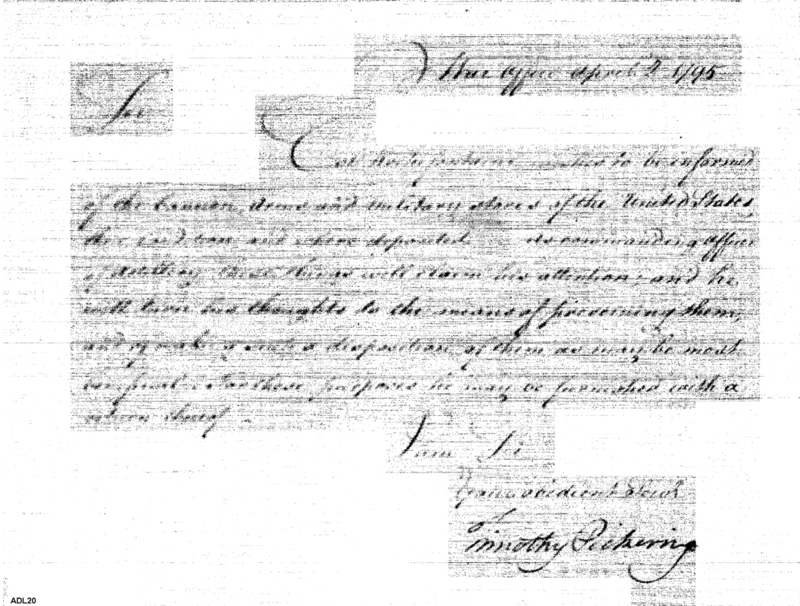 War Office April 2 1795
Sir
Col Rochefontaine wishes to be informed
of the Cannon, Arms and military stores of the United States,
their condition and where deposited. As commanding officer
of Artillery these things will claim his attention; and he
will turn his thoughts to the means of preserving them,
and of making such a disposition of them as may be most
For these purposes he may be furnished with a
return thereof
I am Sir
Your obedient Servt
Timothy Pickering
ADL20